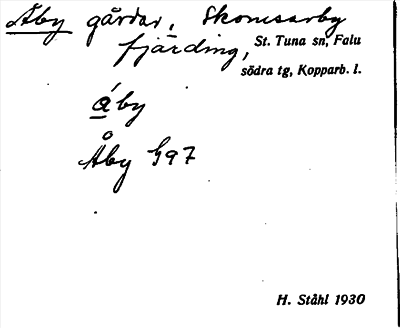 Åby gårdar, Skomsarby
fjärding, St. Tuna sn, Falu
södra tg, Kopparb. l.
áby
Åby 97
H. Ståhl 1930